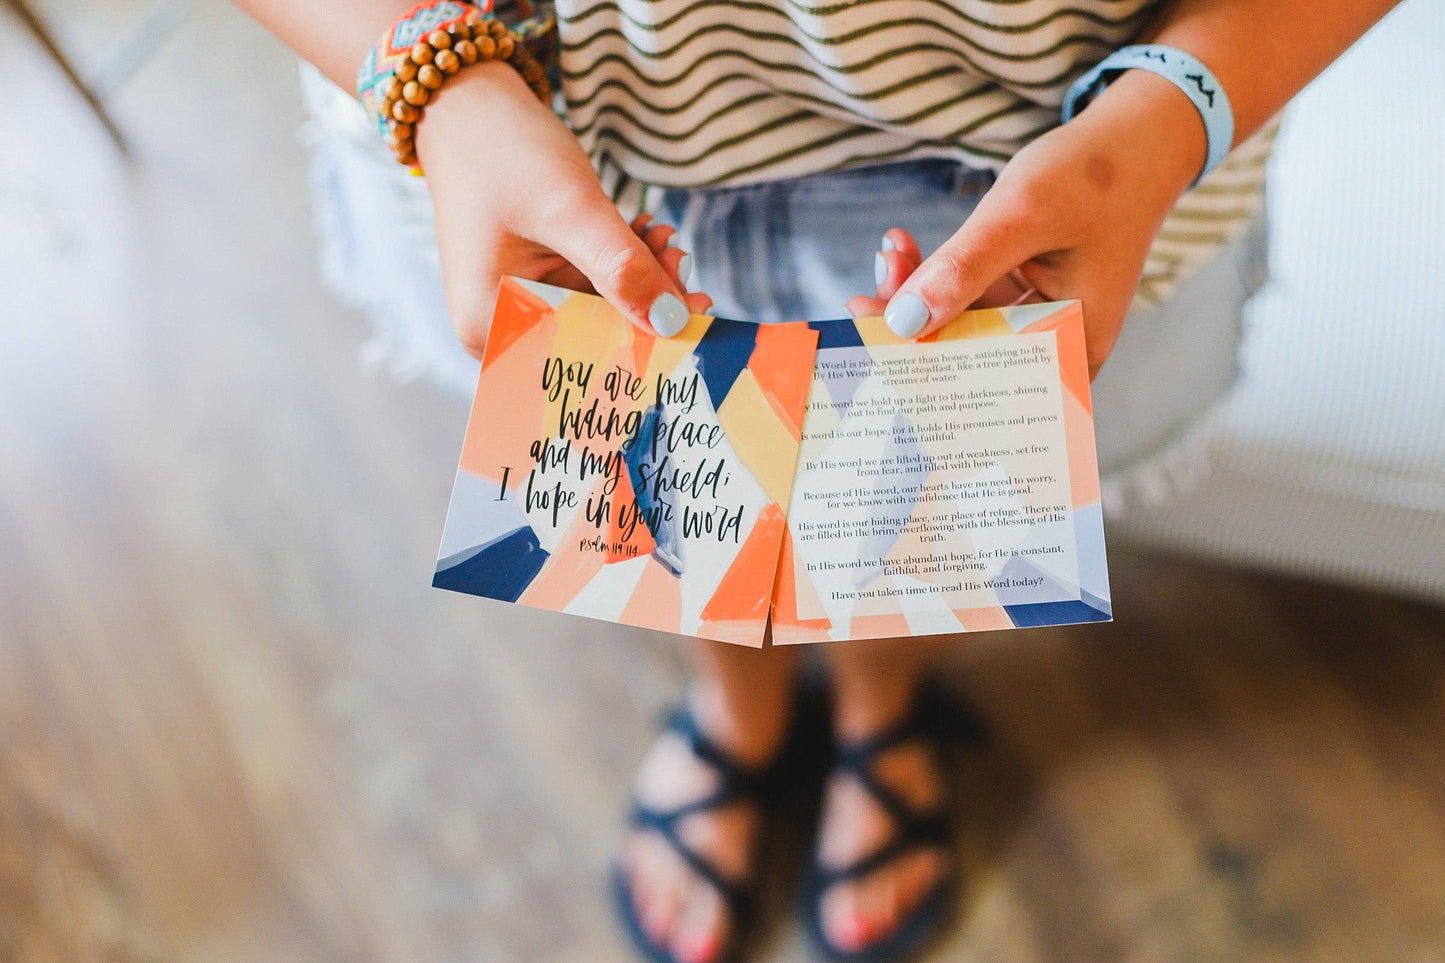 you are my
hiding place
and my shield;
I hope in your word
psalm 119:114
Word is rich, sweeter than honey, satisfying to the
By His Word we hold steadfast, like a tree planted by
streams of water.
His word we hold up a light to the darkness, shining
out to find our path and purpose.
word is our hope, for it holds His promises and proves
them faithful.
By His word we are lifted up out of weakness, set free
from fear, and filled with hope.
Because of His word, our hearts have no need to worry,
for we know with confidence that He is good.
His word is our hiding place, our place of refuge. There we
are filled to the brim, overflowing with the blessing of His
truth.
In His word we have abundant hope, for He is constant,
faithful, and forgiving.
Have you taken time to read His Word today?